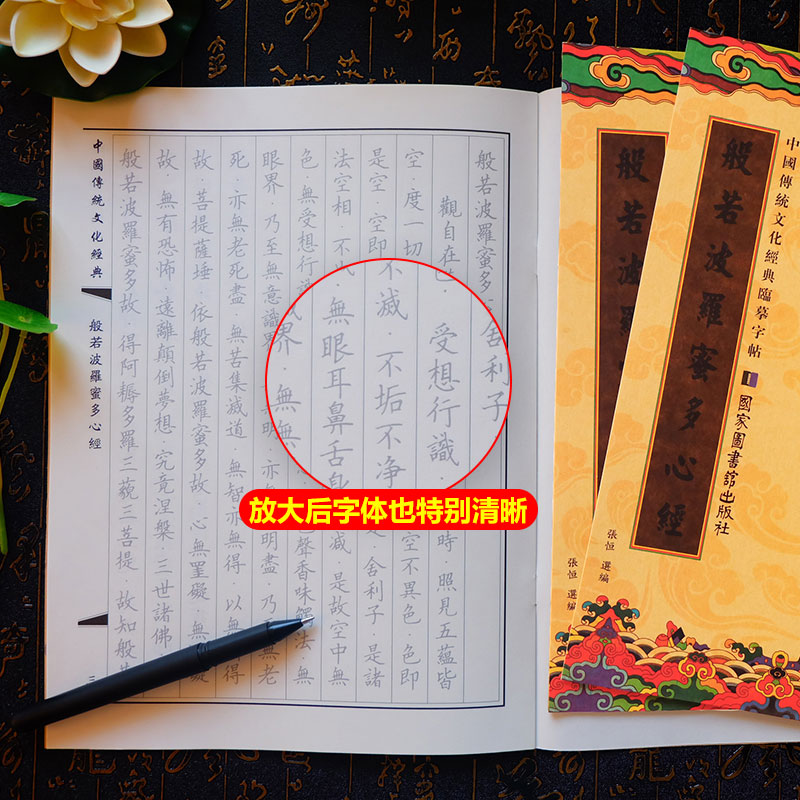 般若波羅蜜多
觀自在
時·照見五蘊皆
空·度一切
空不異色·色即
是空·空即
舍利子·是諸
法空相·不
減·是故空中無
色·無受想行
聲香味觸法·無
眼界·乃至無意識界
明盡·乃
無老
死·亦無老死盡·無苦集滅道·無智亦無得·以無
得
故·菩提薩埵·依般若波羅蜜多故·心無罣礙·無
礙
故·無有恐怖·遠離顛倒夢想·究竟涅槃·三世諸佛
般若波羅蜜多故·得阿耨多羅三藐三菩提·故知般
舍利子
受想行識·
不滅·不垢不净
無眼耳鼻舌身
界·無無
放大后字体也特别清晰
中國傳統文化經典
般若波羅蜜多心經
三
中國傳統文化經典臨摹字帖
般若波羅蜜多心經
國家圖書館出版社
張恒 選編
般若波羅
張恒 選編